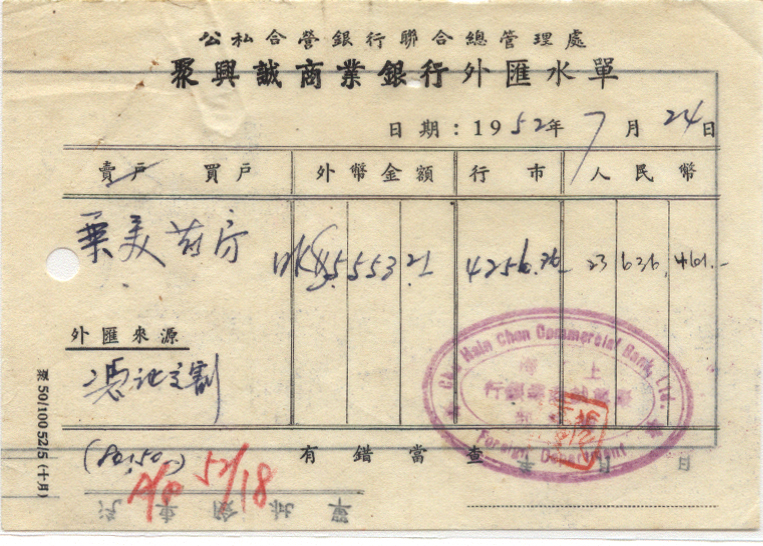 公私合營銀行聯合總管理處
聚興誠商業銀行外匯水單
日期：1952年7月24日
賣戶 買戶 外幣金額 行市 人民幣
美 HK$5,553.21 4256.36 23,636,461.-
外匯來源
憑証交割
Chu Hsin Chen Commercial Bank, Ltd.
上海
聚興誠商業銀行
Foreign Department
有錯當查
年 月 日
A/P 52/18
票 50/100 52/5 (十月)